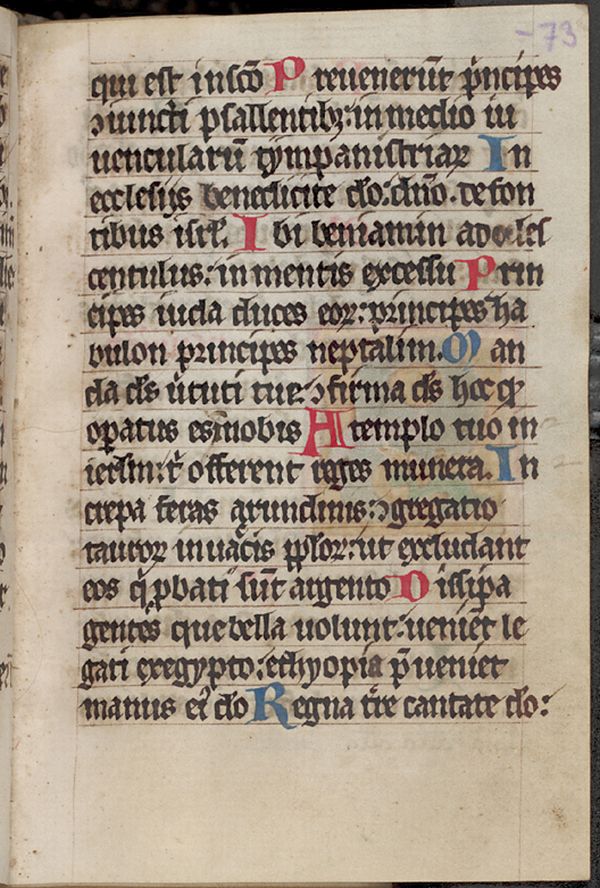 -73
qui est in sc̄o P reuenerūt p̄ncipes
ɔiuncti psallentibꝫ: in medio iu
uencularū tympanistriaꝝ In
ecclesijs benedicite dō: dn̄o. de fon
tibus isrl̓. I bi beniamin adoles
centulus: in mentis excessu P rin
cipes iuda duces eoꝝ: principes ha
bulon principes neptalim. M an
da ds̄ u̓tuti tue: ɔfirma ds̄ hoc qͦ
opatus es innobis A templo tuo in
ierl̄m: t̓ offerent reges munera. In
crepa feras arundinis: ɔgregatio
tauroꝝ in uac̓is ppl̓oꝝ: ut excludant
eos q̓ ꝓbati sūt argento D issipa
gentes que bella uolunt: ueniēt le
gati exegypto: ethyopia p̄ueniet
manus ei᷒ dō R egna tr̄e cantate dō: